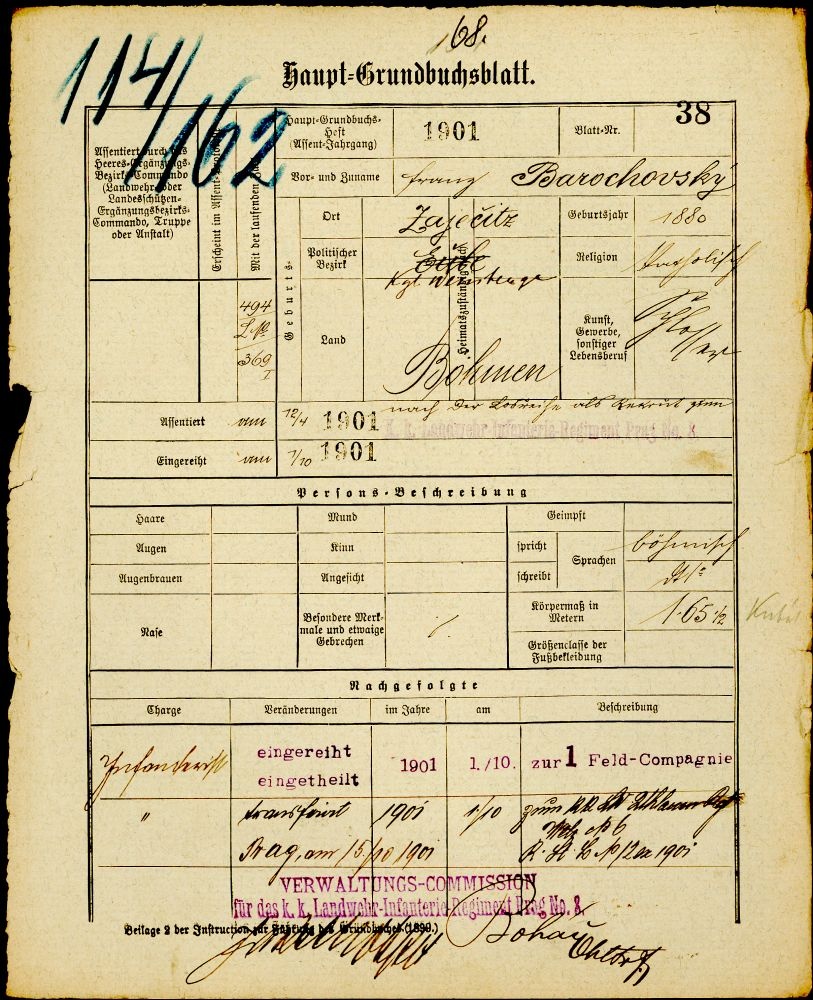 68.
114/162
Haupt-Grundbuchsblatt.
38
Assentiert durch das
Heeres-Ergänzungs-
Bezirks-Commando
(Landwehr- oder
Landesschützen-
Ergänzungsbezirks-
Commando, Truppe
oder Anstalt)
Erscheint im Assent-Protokolle
Mit der laufenden Zahl
Haupt-Grundbuchs-
Heft
(Assent-Jahrgang)
1901
Blatt-Nr.
Vor- und Zuname
Franz Barochovský
Geburts-
Ort
Zaječitz
Geburtsjahr
1880
Politischer
Bezirk
Kgl. Weinberge
Heimatszuständig
Religion
katholisch
494
369
I
Land
Böhmen
Kunst,
Gewerbe,
sonstiger
Lebensberuf
Schlosser
Assentiert am 12/4 1901 nach der Losreihe als Rekrut zum
k. k. Landwehr-Infanterie-Regiment Prag No. 8.
Eingereiht am 1/10 1901
Persons-Beschreibung
Haare
Mund
Geimpft
Augen
Kinn
spricht
Sprachen
böhmisch
Augenbrauen
Angesicht
schreibt
dto
Nase
Besondere Merk-
male und etwaige
Gebrechen
Körpermaß in
Metern
1·65 1/2
Größenclasse der
Fußbekleidung
Nachgefolgte
Charge Veränderungen im Jahre am Beschreibung
Infanterist eingereiht
eingetheilt 1901 1./10. zur 1 Feld-Compagnie
" transferirt 1901 1/10 zum
№ 6
Prag, am 15/10 1901
VERWALTUNGS-COMMISSION
für das k. k. Landwehr-Infanterie-Regiment Prag No. 8.
Beilage 2 der Instruction zur Führung des Grundbuches (1899.)